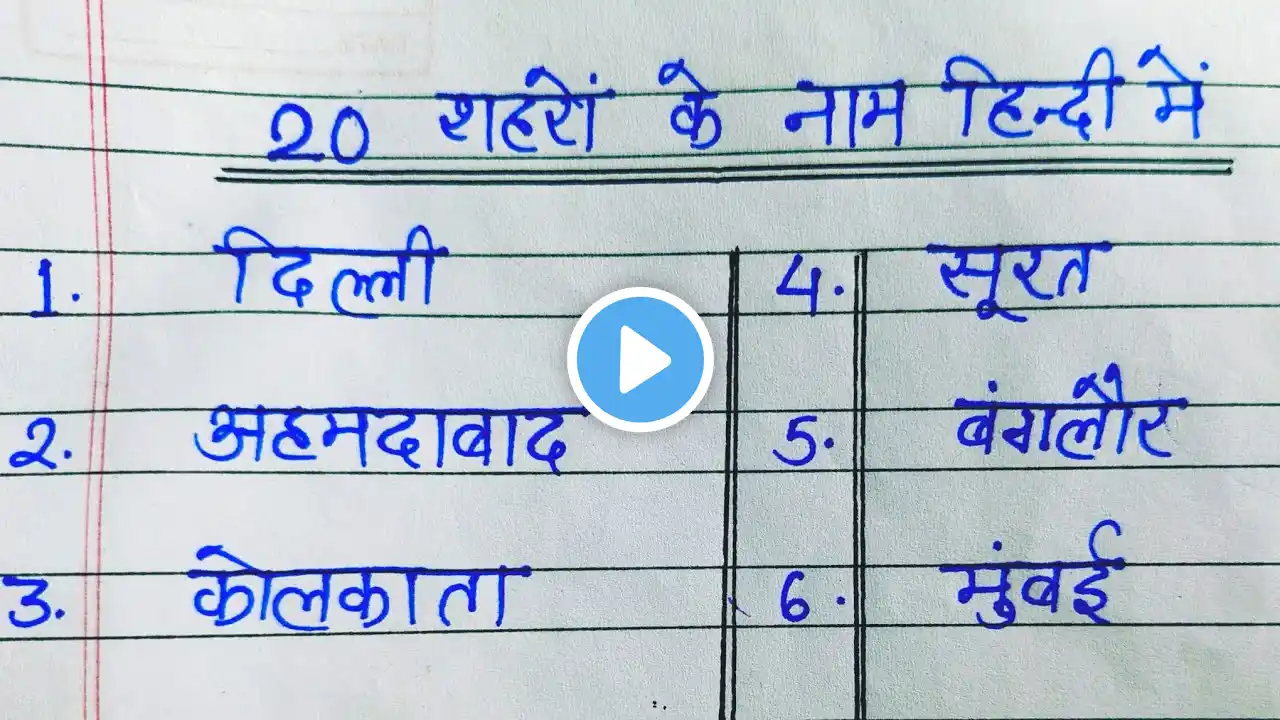 20 शहरों के नाम हिन्दी में
1. दिल्ली
2. अहमदाबाद
3. कोलकाता
4. सूरत
5. बंगलौर
6. मुंबई